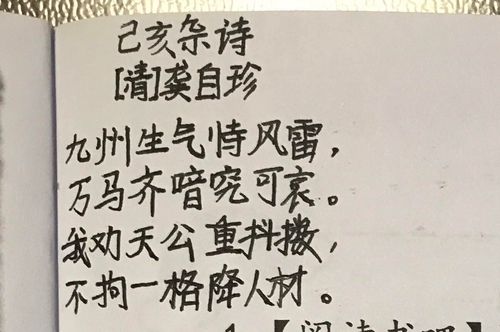 己亥杂诗
[清]龚自珍
九州生气恃风雷，
万马齐喑究可哀。
我劝天公重抖擞，
不拘一格降人材。
1.【阅读书吧】